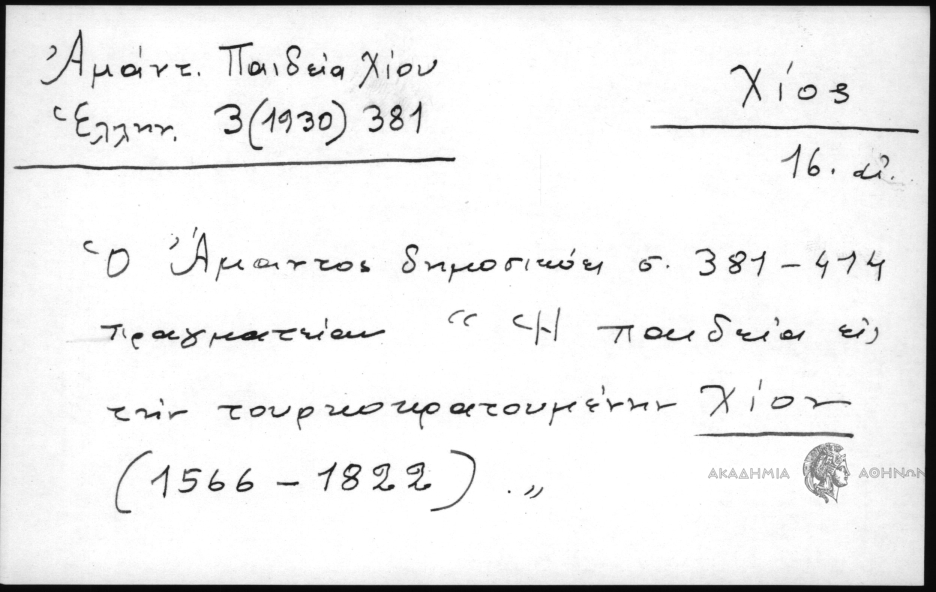 Ἀμάντ. Παιδεία Χίου
Ἑλλην. 3(1930) 381
Χίος
16. αἰ.
Ὁ Ἄμαντος δημοσιεύει σ. 381-414
πραγματείαν "Ἡ παιδεία εἰς
τὴν τουρκοκρατουμένην Χίον
(1566-1822)."
ΑΚΑΔΗΜΙΑ ΑΘΗΝΩΝ